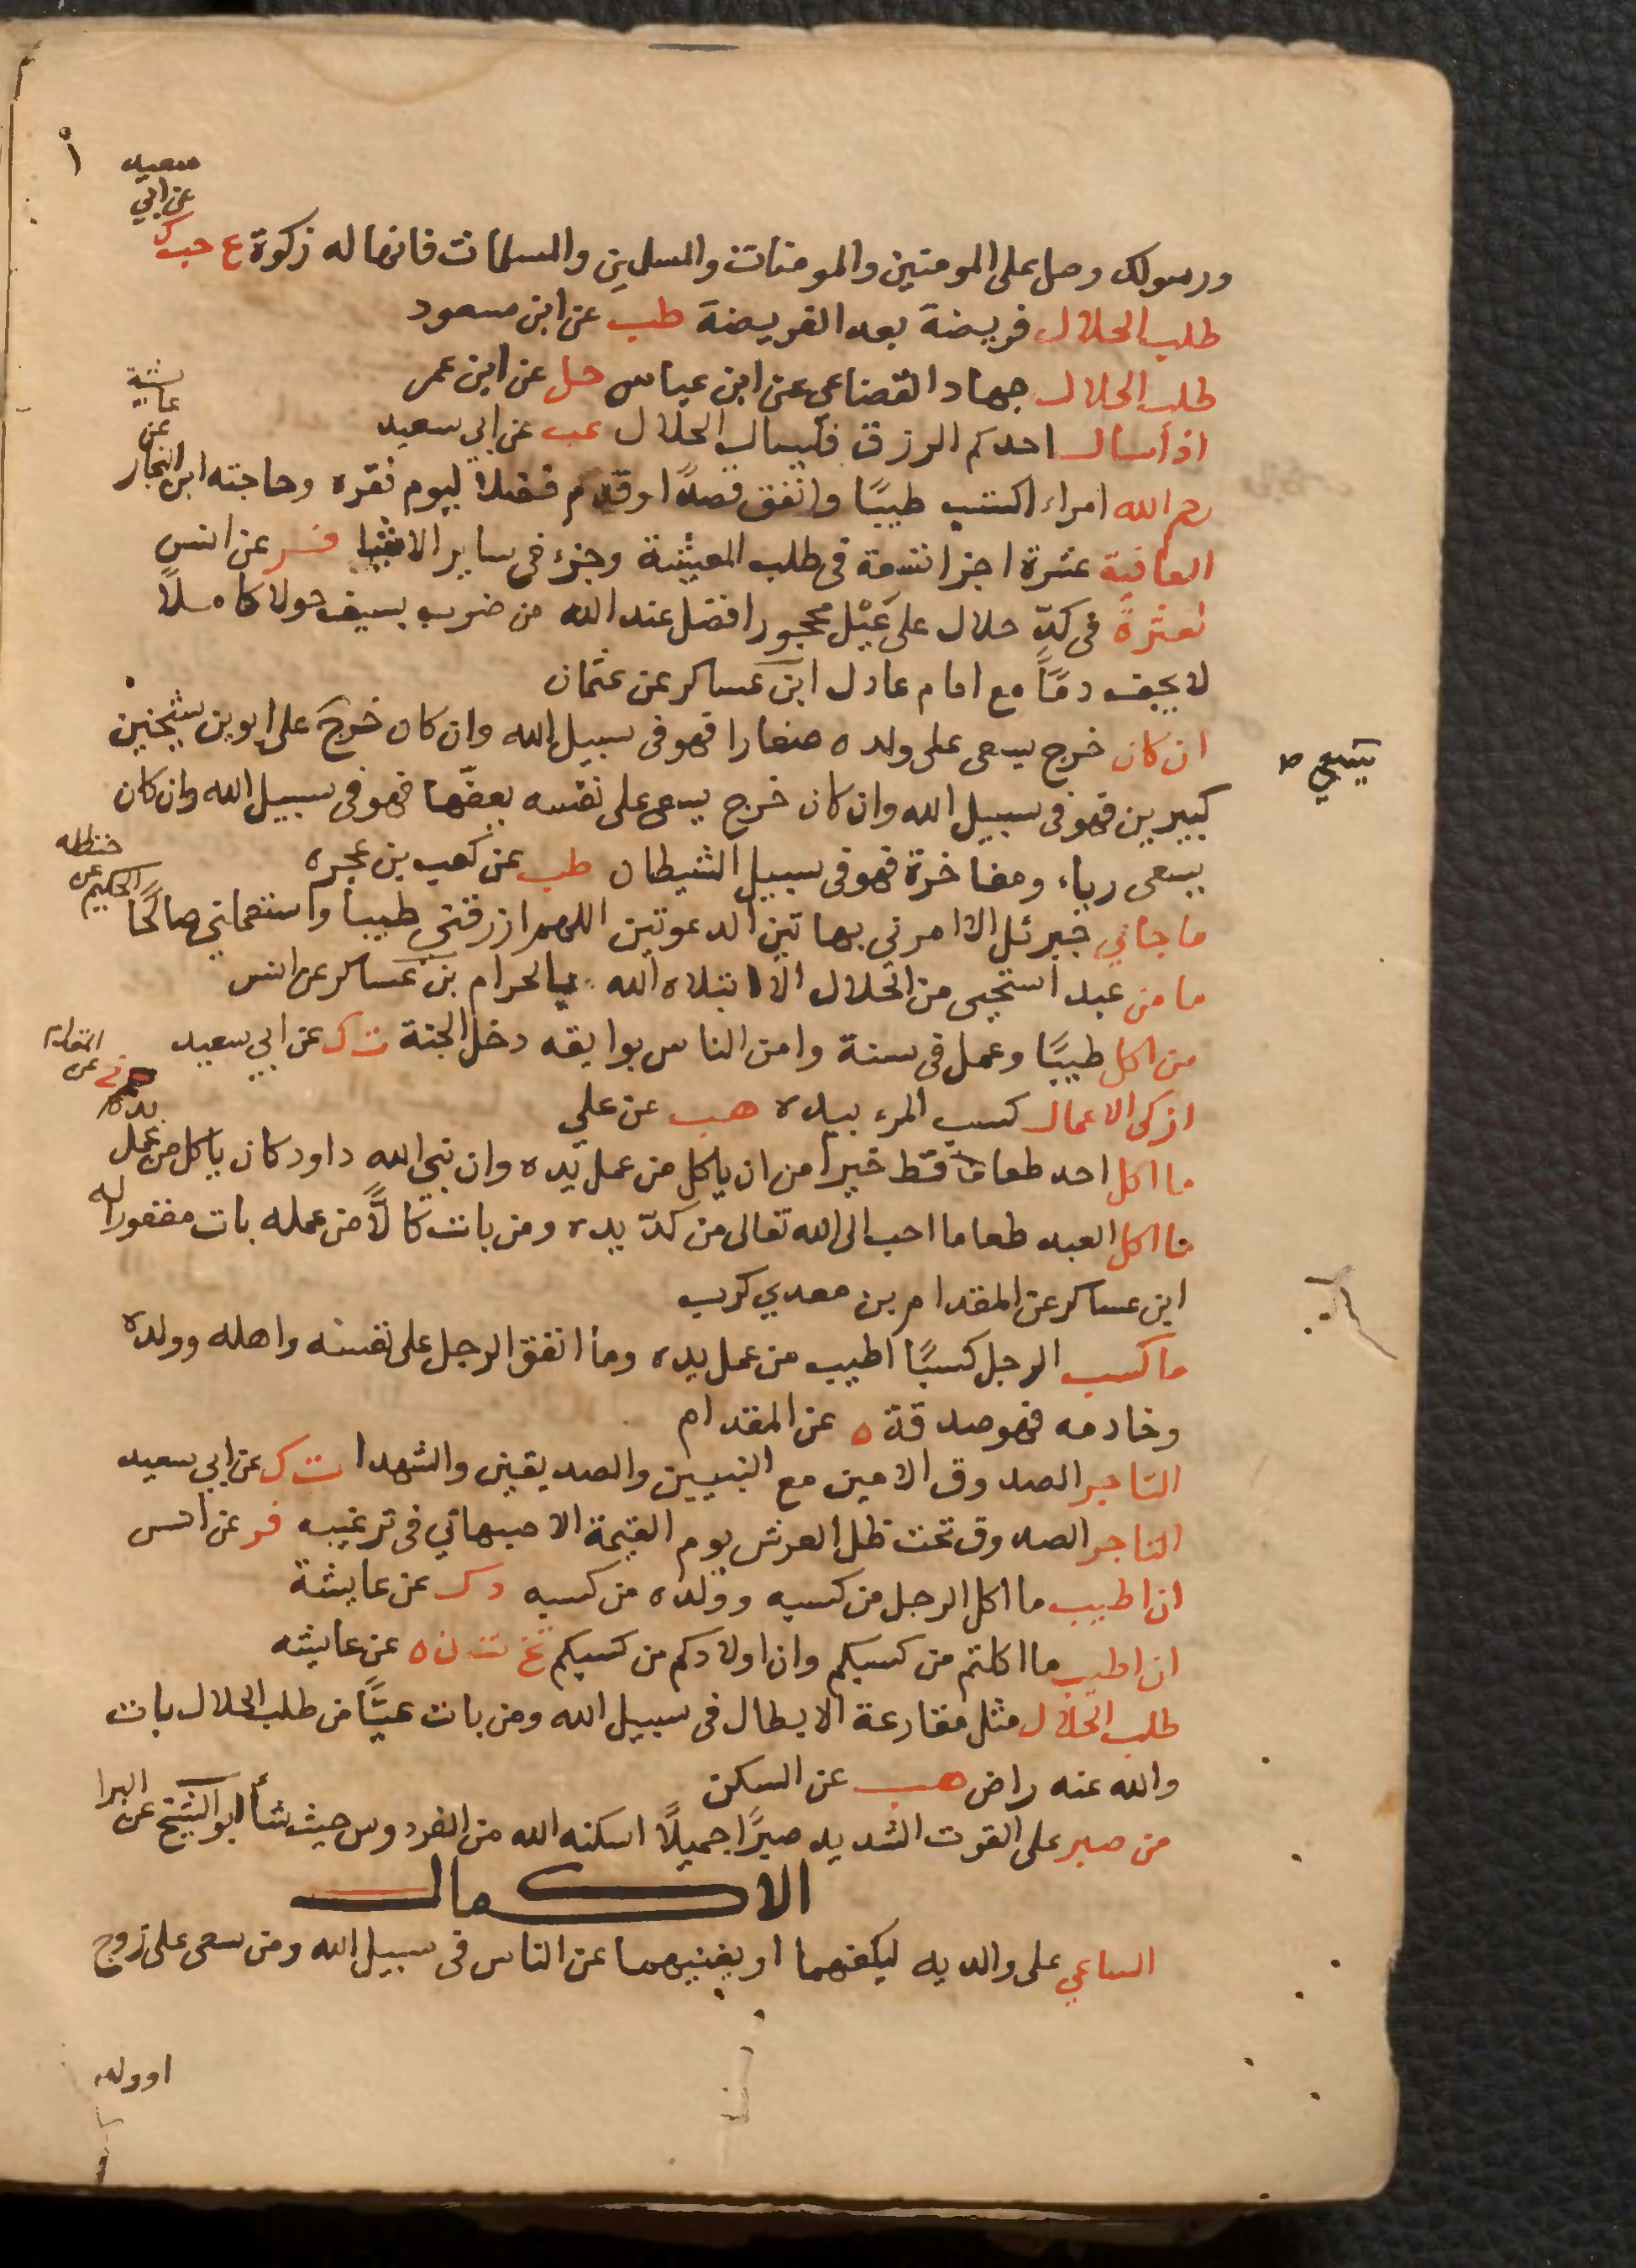 ورسولك وصل على المومنين والمومنات والمسلمين والمسلمات فانها له زكوة ع حب ك
عن ابي
سعيد
طلب الحلال فريضة بعد الفريضة طب عن ابن مسعود
طلب الحلال جهاد القضاعي عن ابن عباس حل عن ابن عمر
اذا سال احدكم الرزق فليسال الحلال عب عن ابي سعيد
رحم الله امراء اكتسب طيبًا وانفق قصدًا وقدّم فضلا ليوم فقره وحاجته ابن النجار
عن
عايشة
العافية عشرة اجزا تسعة في طلب المعيشة وجزء في ساير الاشيا فر عن انس
لعثرة في كدّ حلال على عَيْل محجور افضل عند الله من ضرب بسيف حولا كاملاً
لا يجف دمًا مع امام عادل ابن عساكر عن عثمان
ان كان خرج يسعى على ولده صغارا فهو في سبيل الله وان كان خرج على ابوين شيخين
يسعى
كبيرين فهو في سبيل الله وان كان خرج يسعى على نفسه يعفّها فهو في سبيل الله وان كان
يسعى رياء ومفاخرة فهو في سبيل الشيطان طب عن كعب بن عجره
ما جاني جبرئل الا امرني بهاتين الدعوتين اللهم ارزقني طيبا واستعملني صالحًا
الحكيم عن
حنظله
ما من عبد استحيى من الحلال الا ابتلاه الله بالحرام بن عساكر عن انس
من اكل طيبًا وعمل في سنة وامن الناس بوايقه دخل الجنة ت ك عن ابي سعيد
ازكى الاعمال كسب المرء بيده هب عن علي
ما اكل احد طعاما قط خيرا من ان ياكل من عمل يده وان نبي الله داود كان ياكل من عمل
يده
عن
المقدام
ما اكل العبد طعاما احب الى الله تعالى من كدّ يده ومن بات كالًّا من عمله بات مغفورا له
ابن عساكر عن المقدام بن معدي كرب
ما كسب الرجل كسبًا اطيب من عمل يده وما انفق الرجل على نفسه واهله وولده
وخادمه فهو صدقة ه عن المقدام
التاجر الصدوق الامين مع النبيين والصديقين والشهدا ت ك عن ابي سعيد
التاجر الصدوق تحت ظل العرش يوم القيمة الاصبهاني في ترغيبه فر عن انس
ان اطيب ما اكل الرجل من كسبه وولده من كسبه د ك عن عايشة
ان اطيب ما اكلتم من كسبكم وان اولادكم من كسبكم تخ ت ن ه عن عايشه
طلب الحلال مثل مقارعة الابطال في سبيل الله ومن بات عيًّا من طلب الحلال بات
والله عنه راض هب عن السكن
من صبر على القوت الشديد صبرًا جميلاً اسكنه الله من الفردوس حيث شأ ابو الشيخ عن البرا
الاكمال
الساعي على والديه ليكفهما او يغنيهما عن الناس في سبيل الله ومن سعى على زوج
اوولد